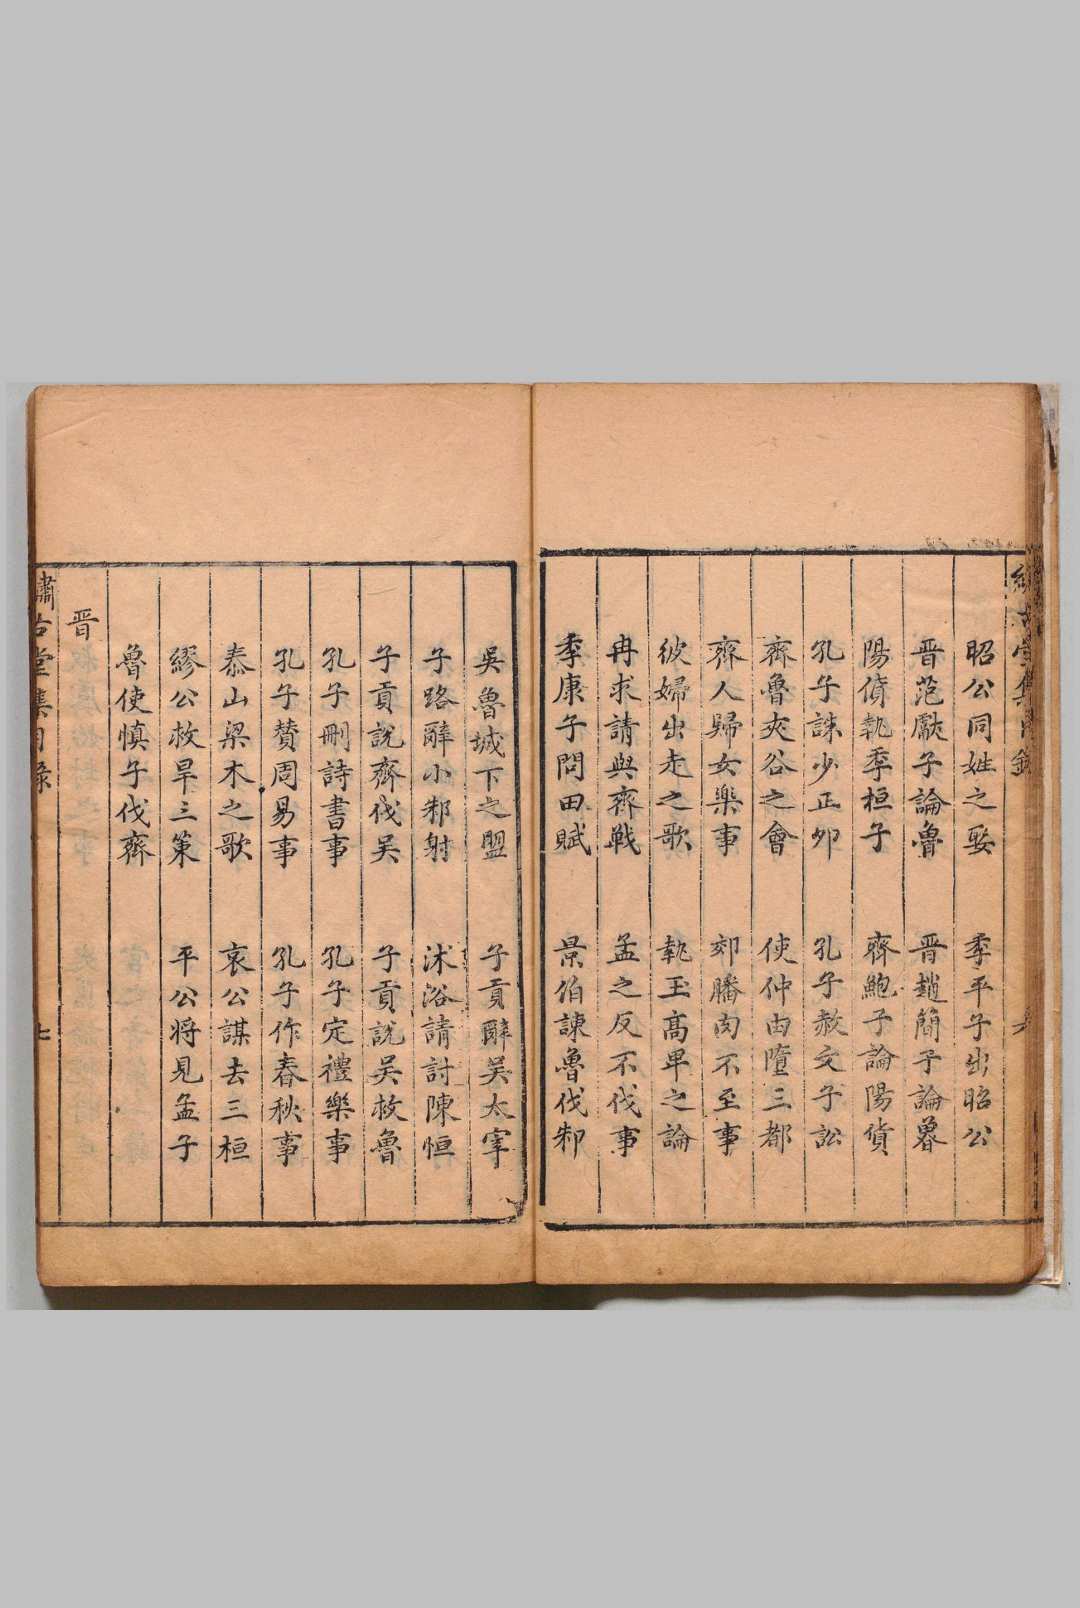 昭公同姓之娶
季平子出昭公
晋范獻子論魯
晋趙簡子論魯
陽貨執季桓子
齊鮑子論陽貨
孔子誅少正夘
孔子赦父子訟
齊魯夾谷之會
使仲由墮三都
齊人歸女樂事
郊膰肉不至事
彼婦出走之歌
執玉髙卑之論
冉求請與齊戦
孟之反不伐事
季康子問田賦
景伯諫魯伐邾
吳魯城下之盟
子貢辭吴太宰
子路辭小邾射
沐浴請討陳恒
子貢説齊伐吴
子貢説吴救魯
孔子刪詩書事
孔子定禮樂事
孔子賛周易事
孔子作春秋事
泰山梁木之歌
哀公謀去三桓
繆公救旱三策
平公将見孟子
魯使慎子伐齊
晋
嘯古堂集目錄
七